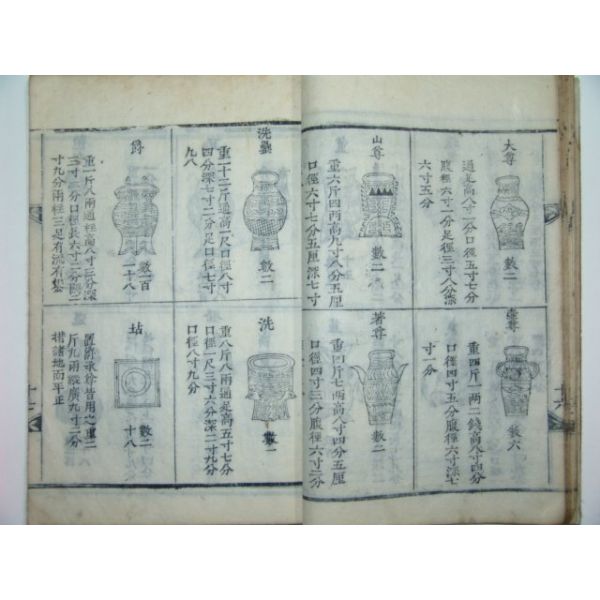 大尊
數二
通足高八寸一分口徑五寸七分
腹徑六寸一分足徑三寸八分深
六寸五分
山尊
數二
重六斤四兩高九寸八分五厘
口徑六寸七分五厘深七寸
壺尊
數六
重四斤一兩二錢高八寸四分
口徑四寸五分腹徑六寸深七
寸一分
著尊
數二
重四斤七兩高八寸四分五厘
口徑四寸三分腹徑六寸二分
洗罍
數二
重十二斤通高一尺口徑八寸
四分深七寸二分足口徑七寸
九八
爵
數一百
一十八
重一斤八兩通柱高八寸二分深
三寸三分口徑長六寸二分闊二
寸九分兩柱三足有流有鋬
洗
數一
重八斤八兩通足高五寸七分
口徑一尺三寸六分深二寸九分
口徑八寸九分
坫
數二
十八
置爵承徐皆用之重二
斤九兩縱廣九寸二分
措諸地而平正